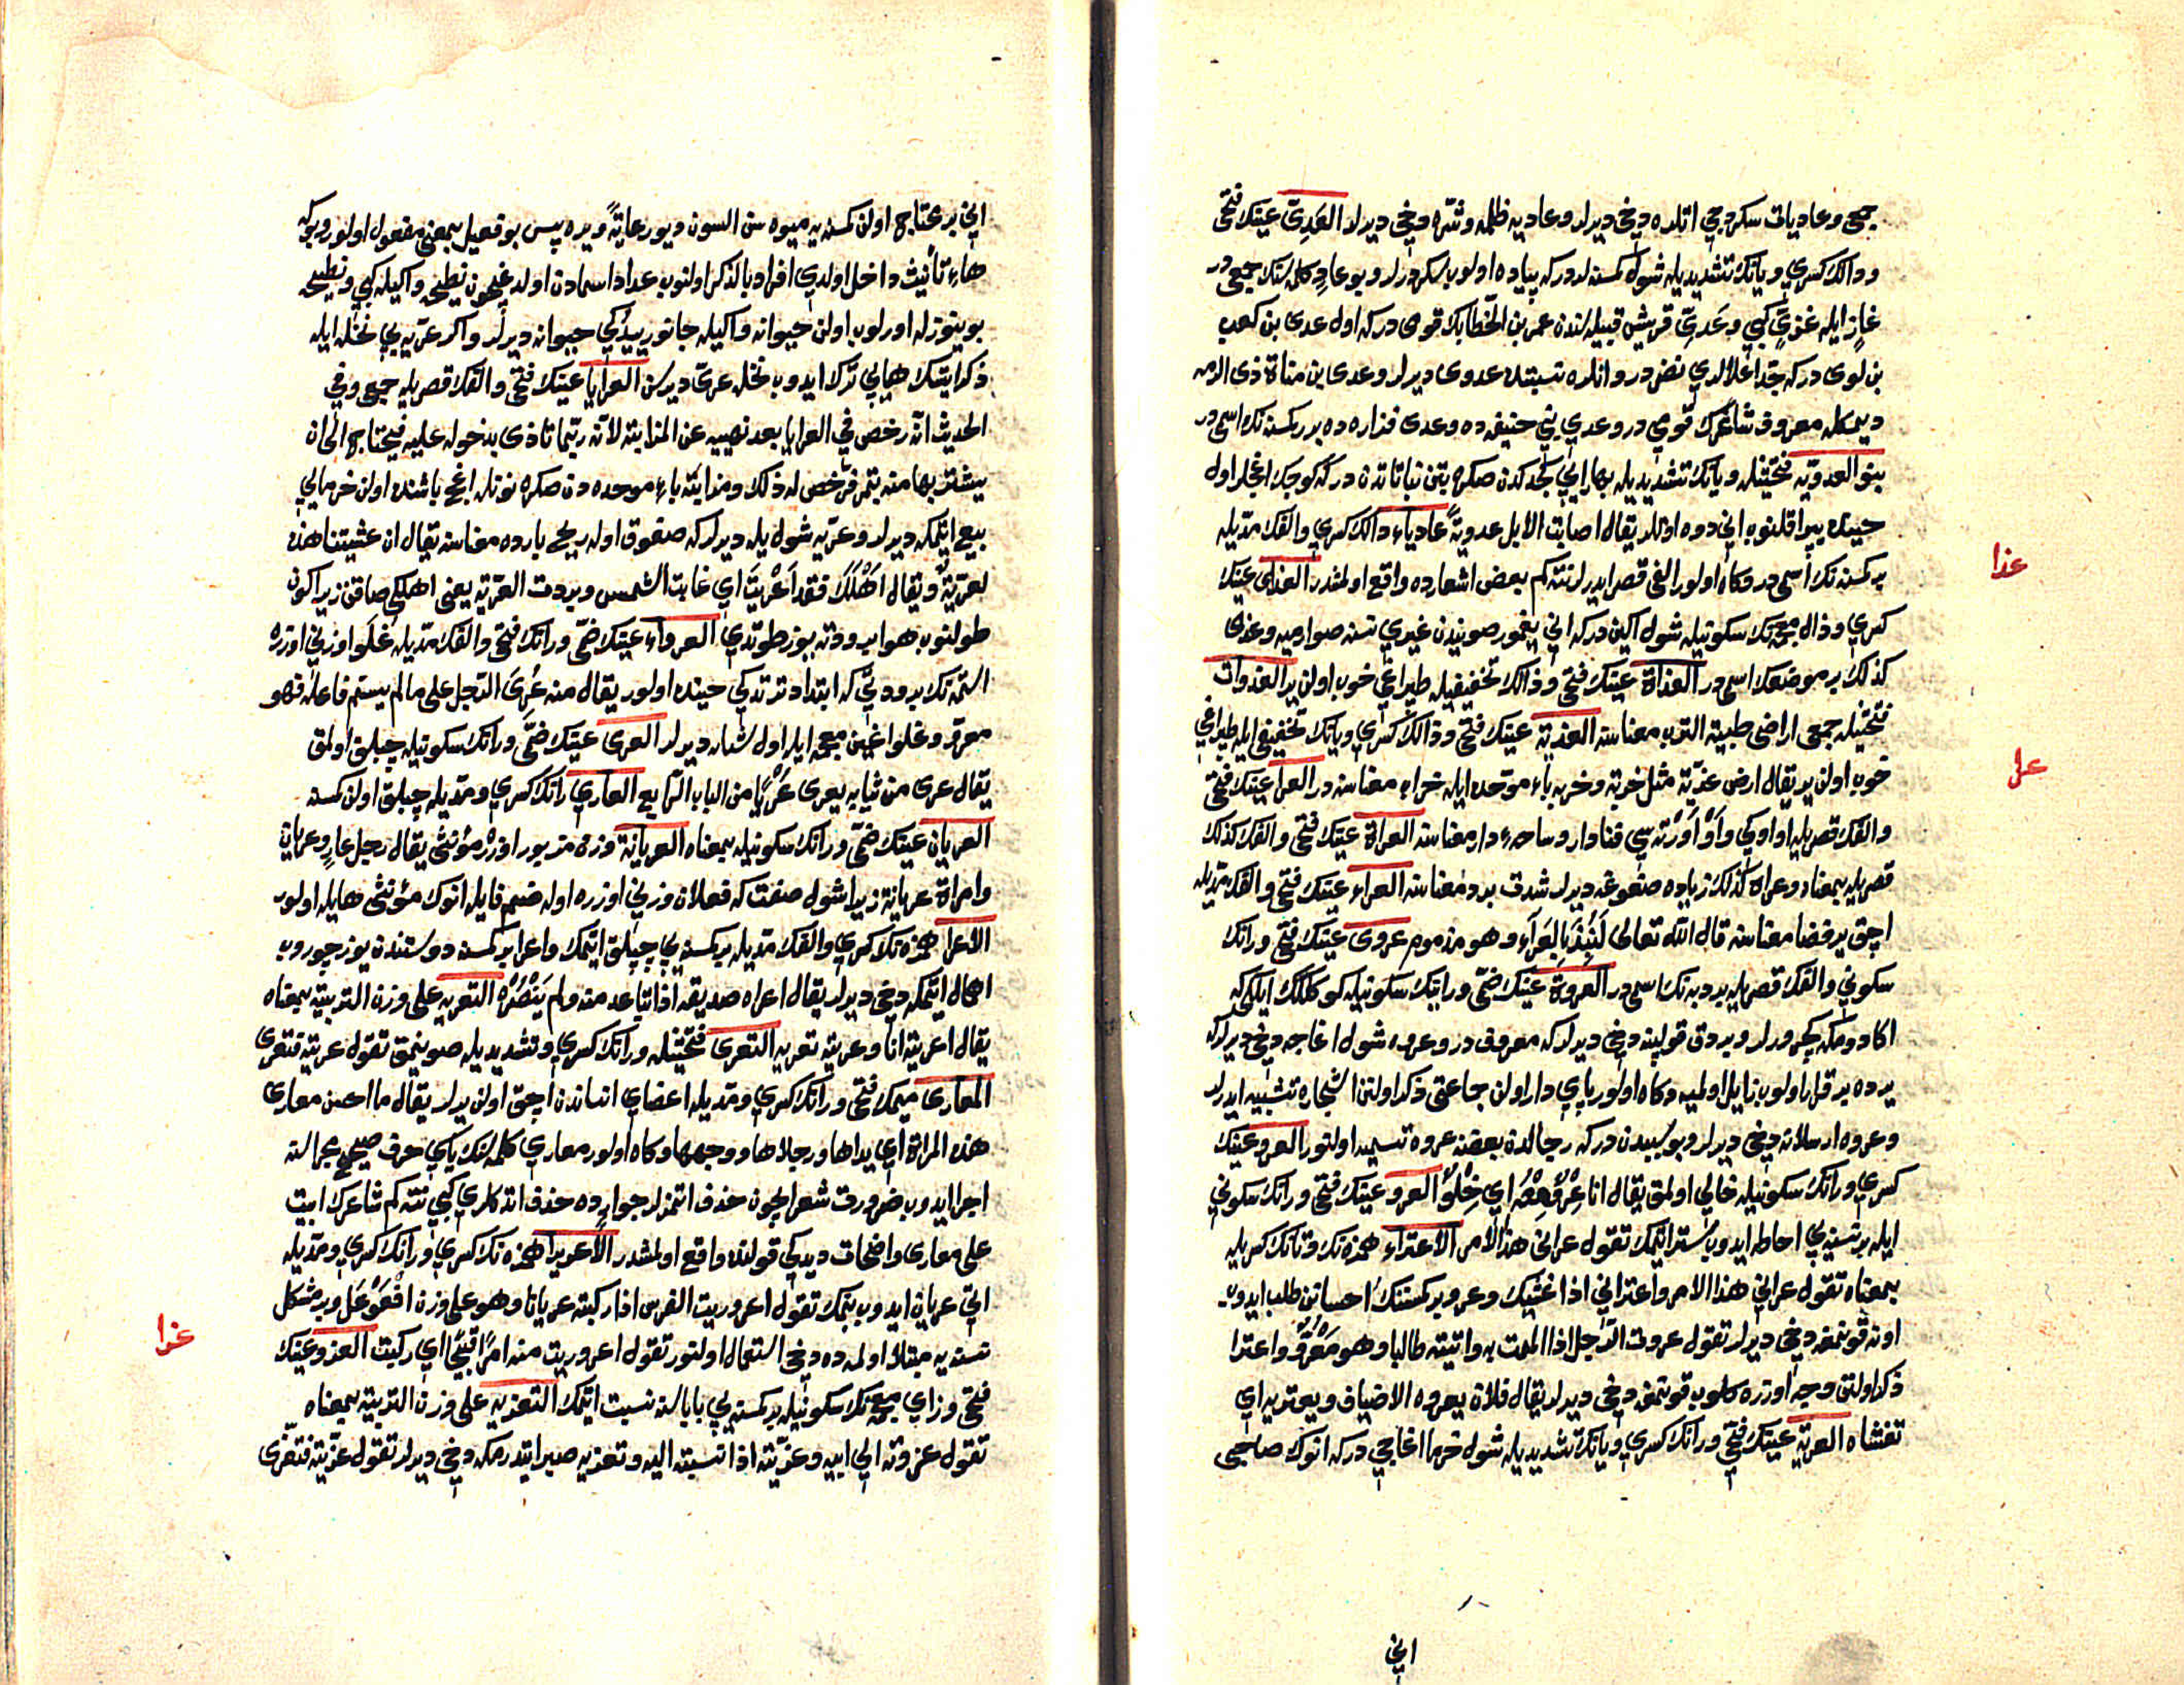 جمعى وعاديات سكردجى اتلره دخى ديرلر وعاديه ظلمه وشره دخى ديرلر العَدِىّ عينك فتحى
ودالك كسرى ويانك تشديديله شول كمسنه لدر كه پياده اولوب سكردرلر وبو عادٍ كلمه سنك جمعى در
غازٍ ايله غزىّ كبى وعَدىّ قريش قبيله سندن عمر بن الخطابك قومى در كه اول عدى بن كعب
بن لوى در كه جد اعلالرى نضر در وانلره نسبتده عدوى ديرلر وعدى بن مناة ذى الرمه
ديمكله معروف شاعرك قومى در وعدى بنى حنيفه ده وعدى فزاره ده بر كمسنه نك اسمى در
بنو العدويه فتحتينله ويانك تشديديله بهار ايى كچدكدن صكره بتن نباتاتدن در كه كوچك اغجلر اول
حينده يپراقلنوب انى دوه اوتلر يقال اصابت الابل عدويةً عادياء دالك كسرى والفك مديله
بر كمسنه نك اسمى در وكاه اولور الفى قصر ايدرلر نته كم بعض اشعارده واقع اولمشدر العذى عينك
كسرى وذال معجمه نك سكونيله شول اكين در كه انى يغمور صويندن غيرى نسنه صوارميه وعذى
كذلك بر موضعك اسمى در العذاة عينك فتحى وذالك تخفيفيله طپراغى خوب اولن ير العذوات
فتحتينله جمعى اراضى طيبة الترب معناسنه العذية عينك فتحى وذالك كسرى ويانك تخفيفى ايله طپراغى
خوب اولن ير يقال ارض عذية مثل خربة وخربه باء موحده ايله خراب معناسنه در العرا عينك فتحى
والفك قصريله اواوكى واَوْ اَوْرته سى فنا دار وساحهء دار معناسنه العراة عينك فتحى والفك كذلك
قصريله بمعناه وعراة كذلك زياده صغوغه ديرلر شدت برد معناسنه العراء عينك فتحى والفك مديله
اچق ير فضا معناسنه قال الله تعالى لَنُبِذَ بِالعَرَآءِ وهو مذموم عروى عينك فتحى ورانك
سكونى والفك قصريله بر دبه نك اسمى در العروة عينك ضمى ورانك سكونيله كوكلك ايلكى كه
اكا دوكمه كچورلر وبردق قولپنه دخى ديرلر كه معروف در وعروه شول اغاجه دخى ديرلر كه
يرده بر قرار اولوب زايل اولميه وكاه اولور پاى دار اولن جماعتى ذكر اولنن اشجاره تشبيه ايدرلر
وعروه ارسلانه دخى ديرلر وبو سببدن در كه رجالدن بعضنه عروه تسميه اولنور العرو عينك
كسرى ورانك سكونيله خالى اولمق يقال انا عِرْوٌ مِنْهُ اى خِلْوٌ العرو عينك فتحى ورانك سكونى
ايله بر نسنه يى احاطه ايدوب ستر ايتمك تقول عرانى هذا الامر الاعتراء همزه نك وتانك كسريله
بمعناه تقول عرانى هذا الامر واعترانى اذا غشيك وعرو بر كمسنك احساننى طلب ايدوب
اونه قونمغه دخى ديرلر تقول عروت الرجل اذا الممت به واتيته طالبا وهو مَعْرُوٌّ واعترا
ذكر اولنن وجه اوزره كلوب قونمغه دخى ديرلر يقال فلان يعروه الاضياف ويعتريه اى
تغشاه العرية عينك فتحى ورانك كسرى ويانك تشديديله شول خرما اغاجى در كه انوك صاحبى
انى
عذا
عرا
انى بر محتاج اولن كمسنه يه ميوه سن السون ديو رعايةً ويره پس بو فعيل بمعنى مفعول اولور وبو كه
هاء تأنيث داخل اولدى افراد بالذكر اولنوب عداد اسمادن اولدوغيچون نطيحه واكيله كبى ونطيحه
بوينوزله اورلوب اولن حيوانه واكيله جانور ييدكى حيوانه ديرلر واكر عريه يى نخله ايله
ذكر ايتسك هايى ترك ايدوب نخله عرىّ ديرسن العرايا عينك فتحى والفك قصريله جمعى وفى
الحديث انه رخص فى العرايا بعد نهييه عن المزابنة لانه ربما تاذى بدخوله عليه فيحتاج الى ان
يشتريها منه بتمر فرخص له ذلك ومزابنه باء موحده دن صكره نونله اغج باشنده اولن خرمايى
بيع ايتمكه ديرلر وعريه شول يله ديرلر كه صغوق اوله ريح بارده معناسنه يقال ان عشيتنا هذه
لعريّةٌ ويقال اَهْلَكَ فقد اَعْرَيْتَ اى غابت الشمس وبردت العرّية يعنى اهلكى صاقن زيرا كون
طولنوب هوا برودته يوز طوتدى العرواء عينك ضمى ورانك فتحى والفك مديله غُلَوا وزنى اوزره
استمه نك برودتى كه ابتدا دترتدكى حينده اولور يقال منه عُرِىَ الرجل على ما لم يسم فاعله فهو
معروّ وغلوا غين معجمه ايله اول شبابه ديرلر العرى عينك ضمى ورانك سكونيله چپلاق اولمق
يقال عرى من ثيابه يعرى عُرْيًا من الباب الرابع العارى رانك كسرى ومديله چپلاق اولن كمسنه
العريان عينك ضمى ورانك سكونيله بمعناه العريانة وزن مزبور اوزره مؤنثى يقال رجل عارٍ وعريان
وامراة عريانة زيرا شول صفت كه فعلان وزنى اوزره اوله ضم فايله انوك مؤنثى هايله اولور
الاعرا همزه نك كسرى والفك مديله بر كمسنه يى چپلاق ايتمك واعرا بر كمسنه دوستندن يوز چوروب
اهمال ايتمكه دخى ديرلر يقال اعراه صديقه اذا تباعد منه ولم يَنْصُرْهُ التعريه على وزن التربية بمعناه
يقال اعريته انا وعريته تعريه التعرى فتحتينله ورانك كسرى وتشديديله صوينمق تقول عريته فتعرى
المعارى ميمك فتحى ورانك كسرى ومديله اعضاى انساندن اچق اولن يرلر يقال ما احسن معارى
هذه المراة اى يداها ورجلاها ووجهها وكاه اولور معارى كلمه سنك ياسى حرف صحيح مجراسنه
اجرا ايدوب ضرورت شعر ايچون حذف اتمزلر جوارده حذف اتدكلرى كبى نته كم شاعرك ابيت
على معارى واضحات ديدكى قولنده واقع اولمشدر الاعريرا همزه نك كسرى ورانك كسرى ومديله
اتى عريان ايدوب بنمك تقول اعروريت الفرس اذا ركبته عريانا وهو على وزن افْعَوْعَل وبر مشكل
نسنه يه مبتلا اولمه ده دخى استعمال اولنور تقول اعروريت منه امرًا قبيحًا اى ركبت العزو عينك
فتحى وزاى معجمه نك سكونيله بر كمسنه يى باباسنه نسبت ايتمك التعزيه على وزن التربية بمعناه
تقول عزوته الى ابيه وعزيته اذا نسبته اليه وتعزيه صبر ايتدرمكه دخى ديرلر تقول عزّيته فتعزّى
عزا